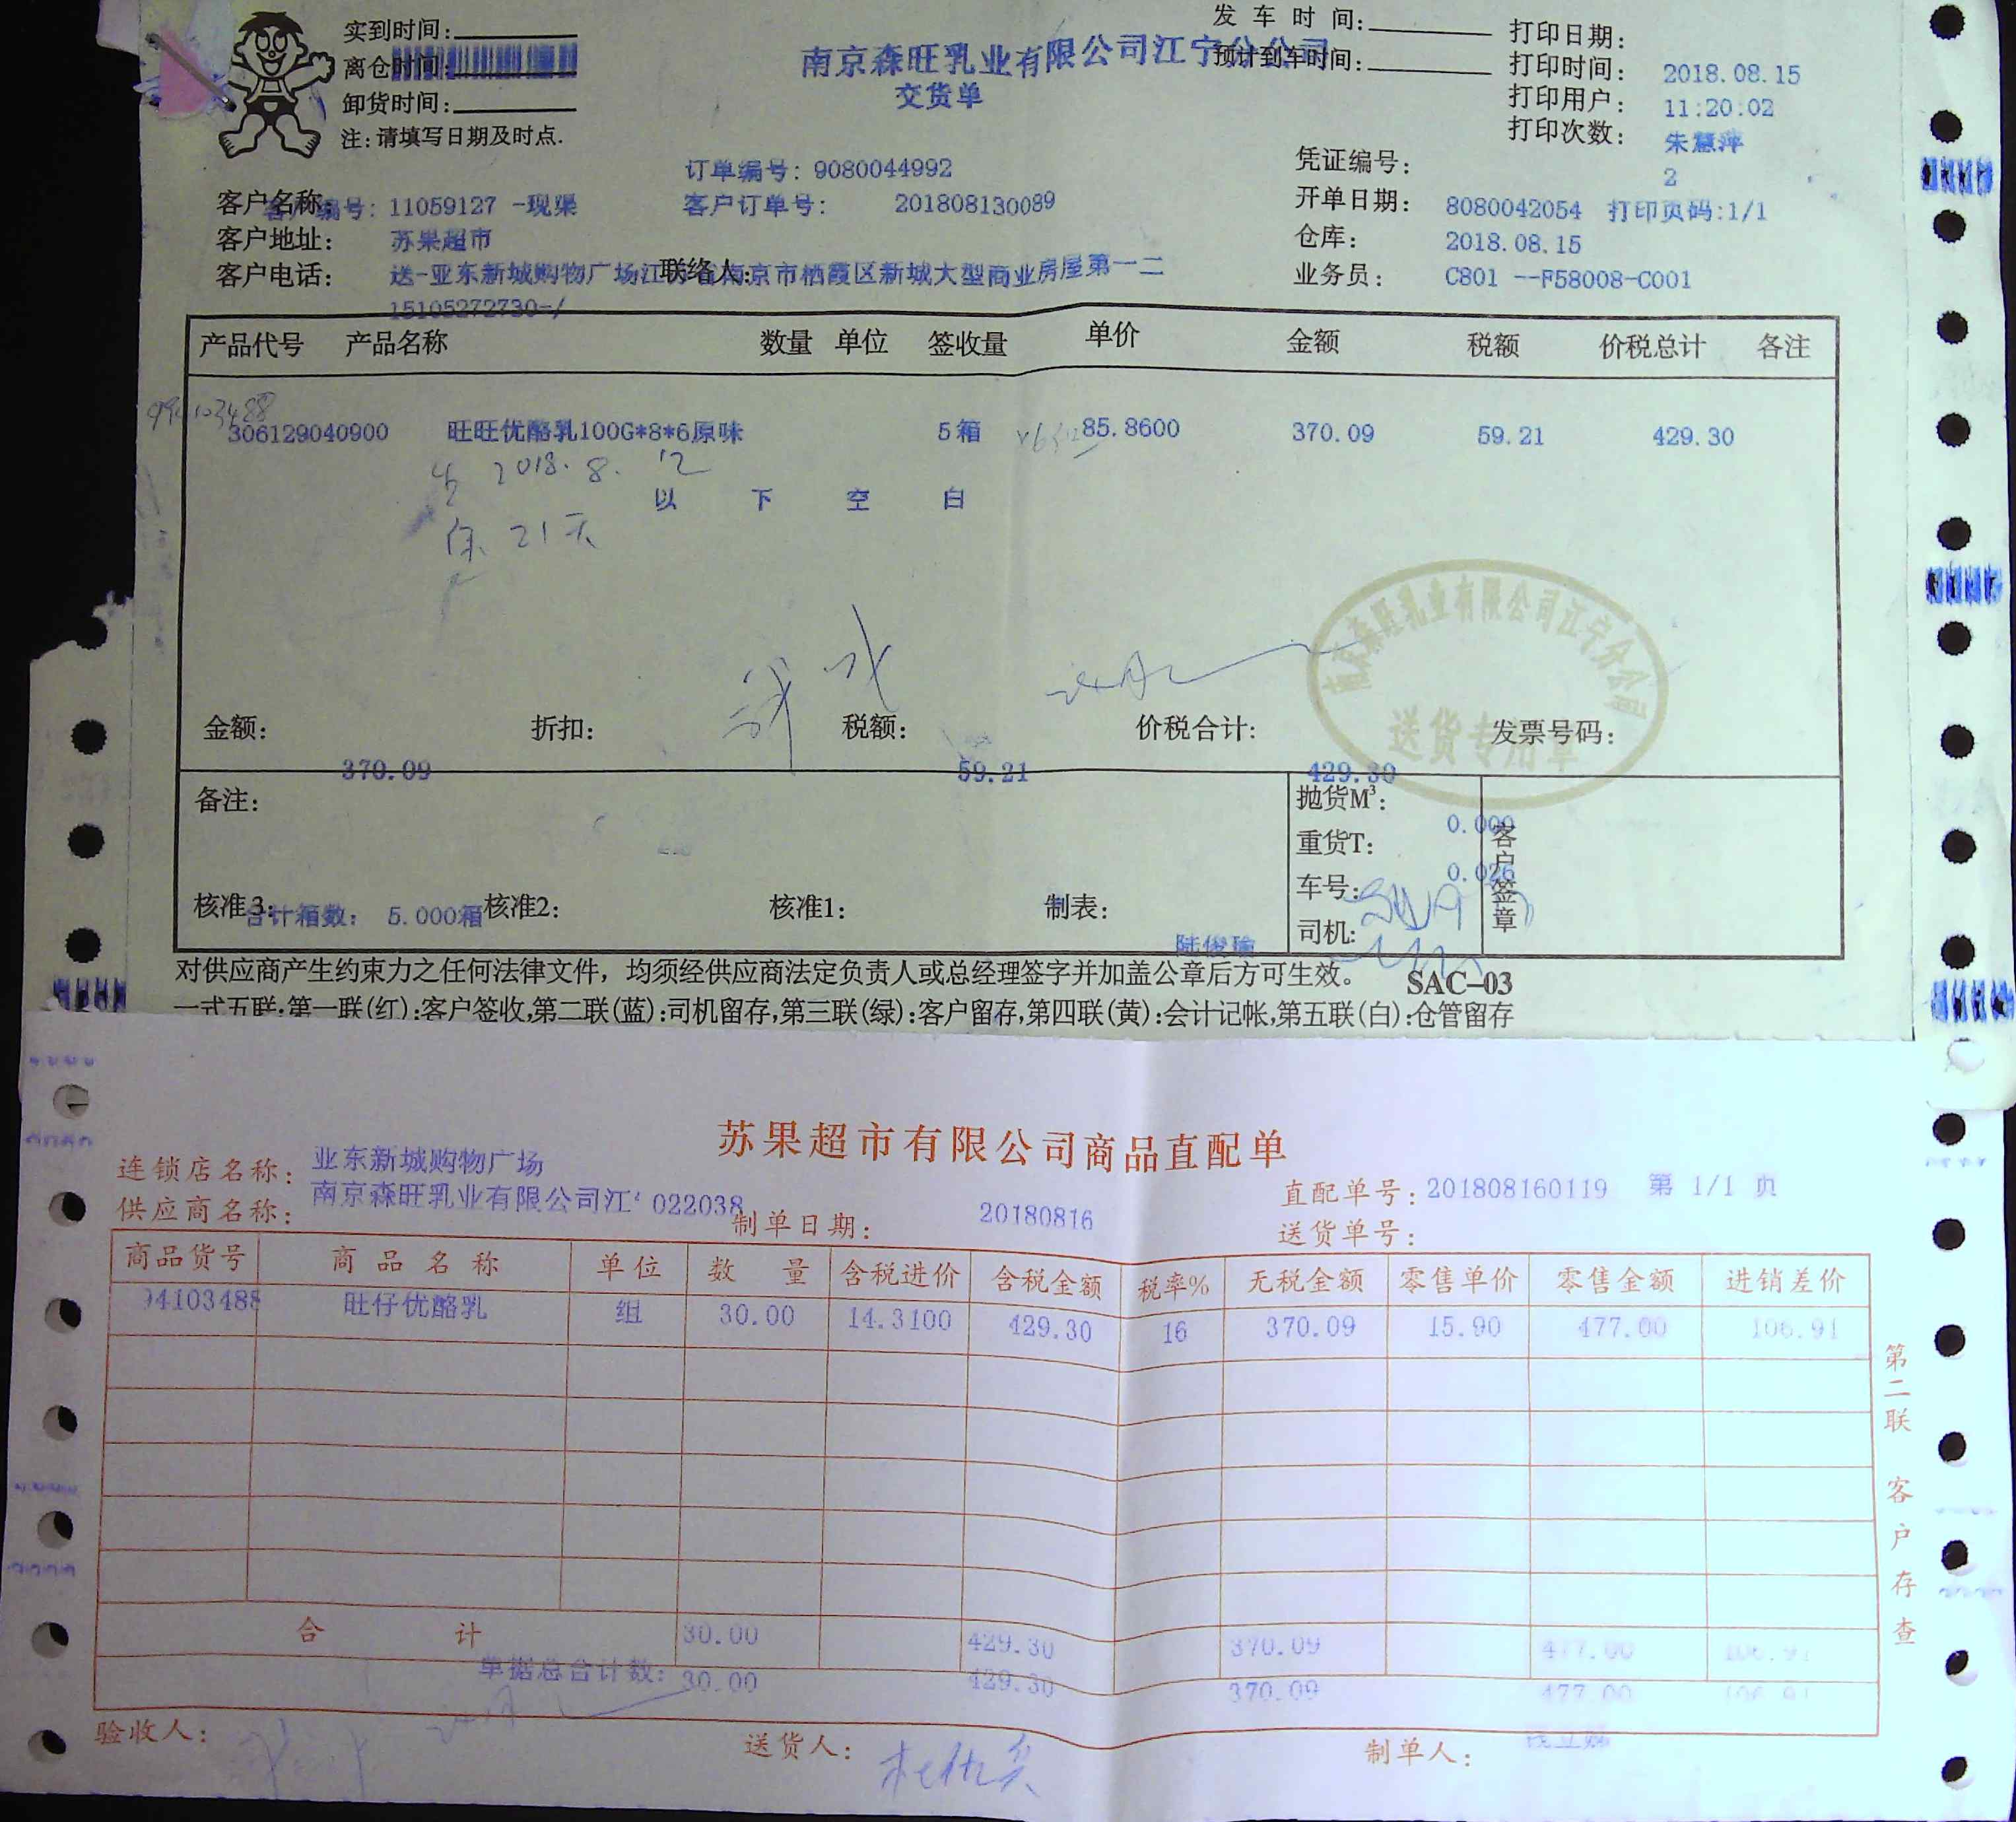 实到时间:
离仓时间:
卸货时间:
注:请填写日期及时点.
南京森旺乳业有限公司江宁分公司
交货单
发车时间:
预计到车时间:
打印日期: 2018.08.15
打印时间: 11:20:02
打印用户: 朱慧萍
打印次数: 2
订单编号: 9080044992
凭证编号: 8080042054 打印页码:1/1
客户编号: 11059127 -现渠
客户订单号: 201808130089
开单日期: 2018.08.15
客户名称: 苏果超市
仓库: C801 --F58008-C001
客户地址: 送-亚东新城购物广场江苏省南京市栖霞区新城大型商业房屋第一二
联络人:
业务员:
客户电话: 15105272730-/
产品代号 产品名称 数量 单位 签收量 单价 金额 税额 价税总计 各注
306129040900 旺旺优酪乳100G*8*6原味 5箱 85.8600 370.09 59.21 429.30
2018.8.12
以下空白
保 21天
南京森旺乳业有限公司江宁分公司
送货专用章
金额: 折扣: 税额: 价税合计: 发票号码:
370.09 59.21 429.30
备注:
抛货M³: 0.000
重货T: 0.026
车号:
司机:
客户签章
核准3: 核准2: 核准1: 制表:
合计箱数: 5.000箱
陆俊瑜
对供应商产生约束力之任何法律文件，均须经供应商法定负责人或总经理签字并加盖公章后方可生效。 SAC-03
一式五联:第一联(红):客户签收,第二联(蓝):司机留存,第三联(绿):客户留存,第四联(黄):会计记帐,第五联(白):仓管留存
苏果超市有限公司商品直配单
连锁店名称: 亚东新城购物广场
供应商名称: 南京森旺乳业有限公司江 022038
制单日期: 20180816
直配单号: 201808160119 第 1/1 页
送货单号:
商品货号 商品名称 单位 数量 含税进价 含税金额 税率% 无税金额 零售单价 零售金额 进销差价
94103488 旺仔优酪乳 组 30.00 14.3100 429.30 16 370.09 15.90 477.00 106.91
合计 30.00 429.30 370.09 477.00 106.91
单据总合计数: 30.00 429.30 370.09 477.00 106.91
验收人: 送货人: 制单人:
第二联 客户存查